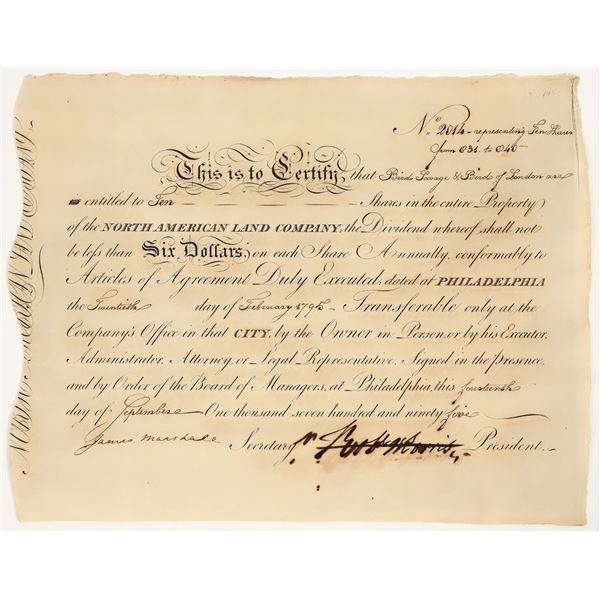 No 2014 - representing Ten Shares
from 031. to 040
This is to Certify, that Bird Savage & Bird of London are
entitled to Ten Shares in the entire Property
of the NORTH AMERICAN LAND COMPANY, the Dividend whereof shall not
be less than Six Dollars, on each Share Annually, conformably to
Articles of Agreement Duly Executed, dated at PHILADELPHIA
the Twentieth day of February 1795 - Transferable only at the
Company's Office in that CITY, by the Owner in Person, or by his Executor,
Administrator, Attorney, or Legal Representative, Signed in the presence,
and by Order of the Board of Managers, at Philadelphia, this fourteenth
day of September One thousand seven hundred and ninety five
James Marshall Secretary Robt Morris President.